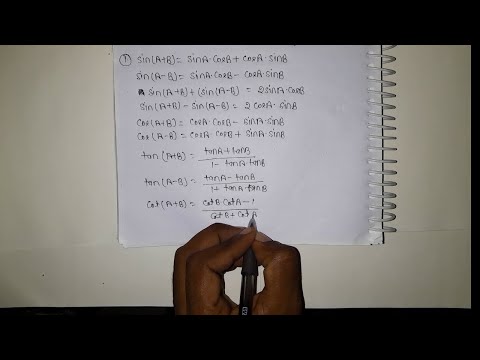 ① sin(A+B)= sinA·cosB + cosA·sinB
sin(A-B)= sinA·cosB - cosA·sinB
sin(A+B) + (sin(A-B) = 2sinA·cosB
sin(A+B) - sin(A-B) = 2 cosA·sinB
cos(A+B) = cosA·cosB - sinA·sinB
cos(A-B) = cosA·cosB + sinA·sinB
tan(A+B) = tanA+tanB / 1 - tanA·tanB
tan(A-B) = tanA-tanB / 1+ tanA·tanB
cot(A+B) = cotB·cotA-1 / cotB+cotA